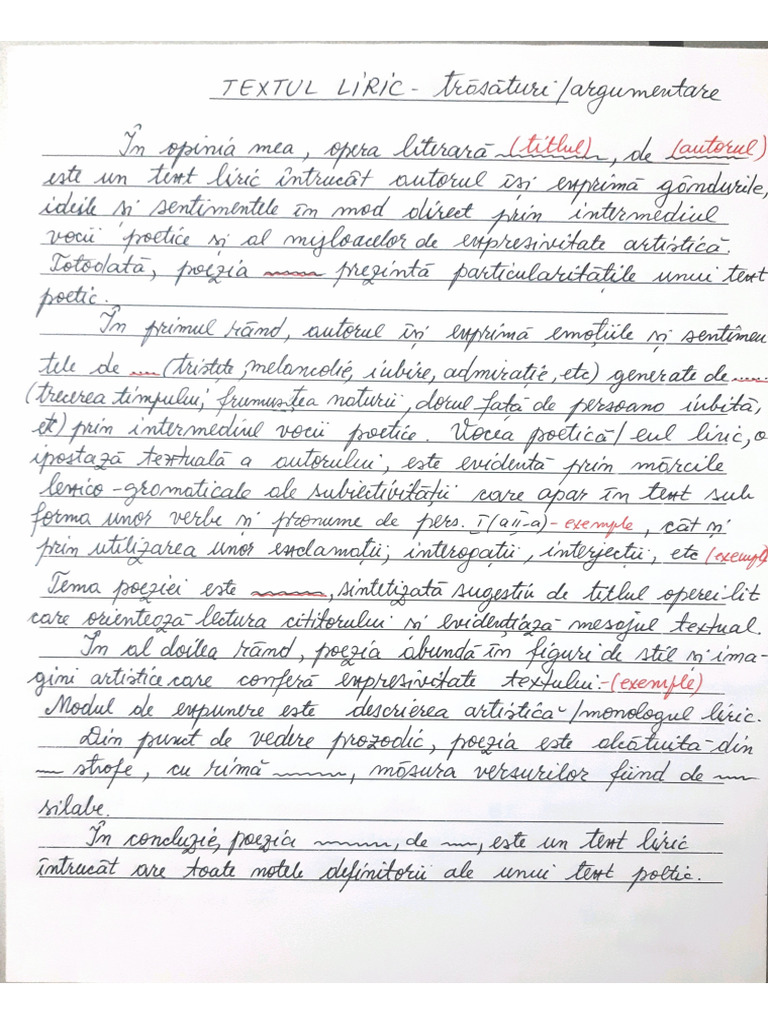 TEXTUL LIRIC - trăsături/argumentare
În opinia mea, opera literară (titlul), de (autorul)
este un text liric întrucât autorul își exprimă gândurile,
ideile și sentimentele în mod direct prin intermediul
vocii poetice și al mijloacelor de expresivitate artistică.
Totodată, poezia prezintă particularitățile unui text
poetic.
În primul rând, autorul își exprimă emoțiile și sentimen
tele de .... (tristețe, melancolie, iubire, admirație, etc) generate de .....
(trecerea timpului, frumusețea naturii, dorul față de persoana iubită,
etc) prin intermediul vocii poetice. Vocea poetică/eul liric, o
ipostază textuală a autorului, este evidentă prin mărcile
lexico-gramaticale ale subiectivității care apar în text sub
forma unor verbe și pronume de pers. I (a II-a) - exemple, cât și
prin utilizarea unor exclamații, interogații, interjecții, etc (exemple)
Tema poeziei este , sintetizată sugestiv de titlul operei lit
care orientează lectura cititorului și evidențiază mesajul textual.
În al doilea rând, poezia abundă în figuri de stil și ima-
gini artistice care conferă expresivitate textului:-(exemple)
Modul de expunere este descrierea artistică/monologul liric.
Din punct de vedere prozodic, poezia este alcătuită din
strofe, cu rimă , măsura versurilor fiind de
silabe.
În concluzie, poezia , de , este un text liric
întrucât are toate notele definitorii ale unui text poetic.